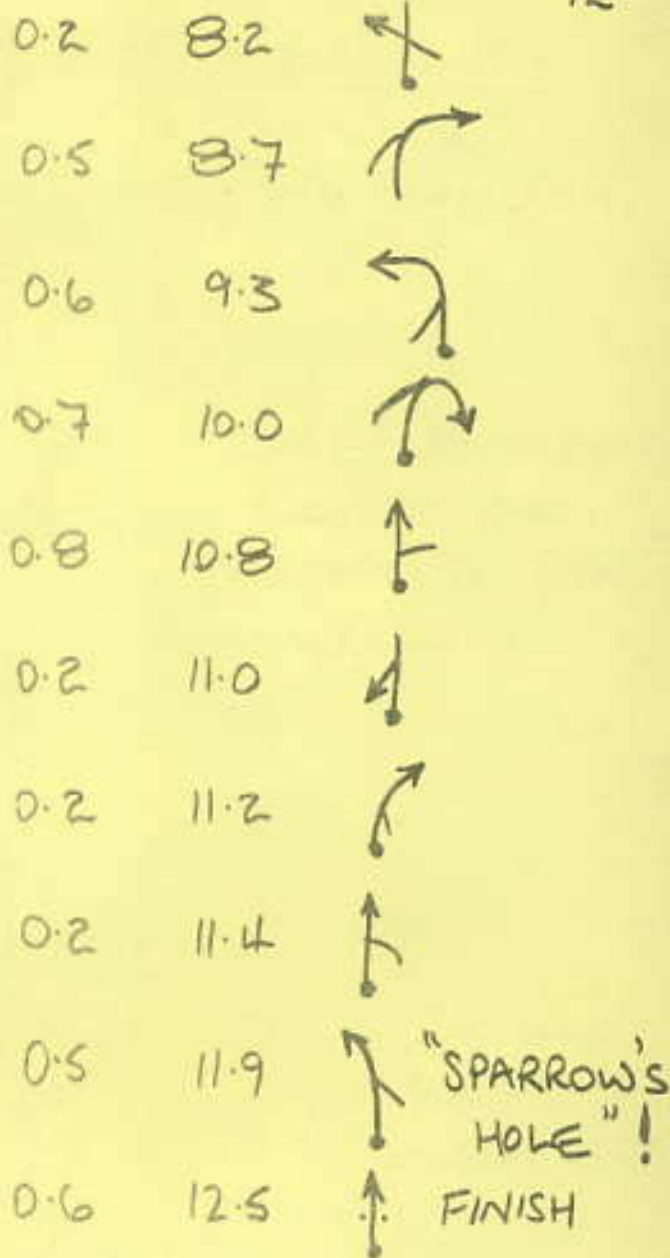 12
0.2 8.2
0.5 8.7
0.6 9.3
0.7 10.0
0.8 10.8
0.2 11.0
0.2 11.2
0.2 11.4
0.5 11.9 "SPARROW'S
HOLE"!
0.6 12.5 FINISH